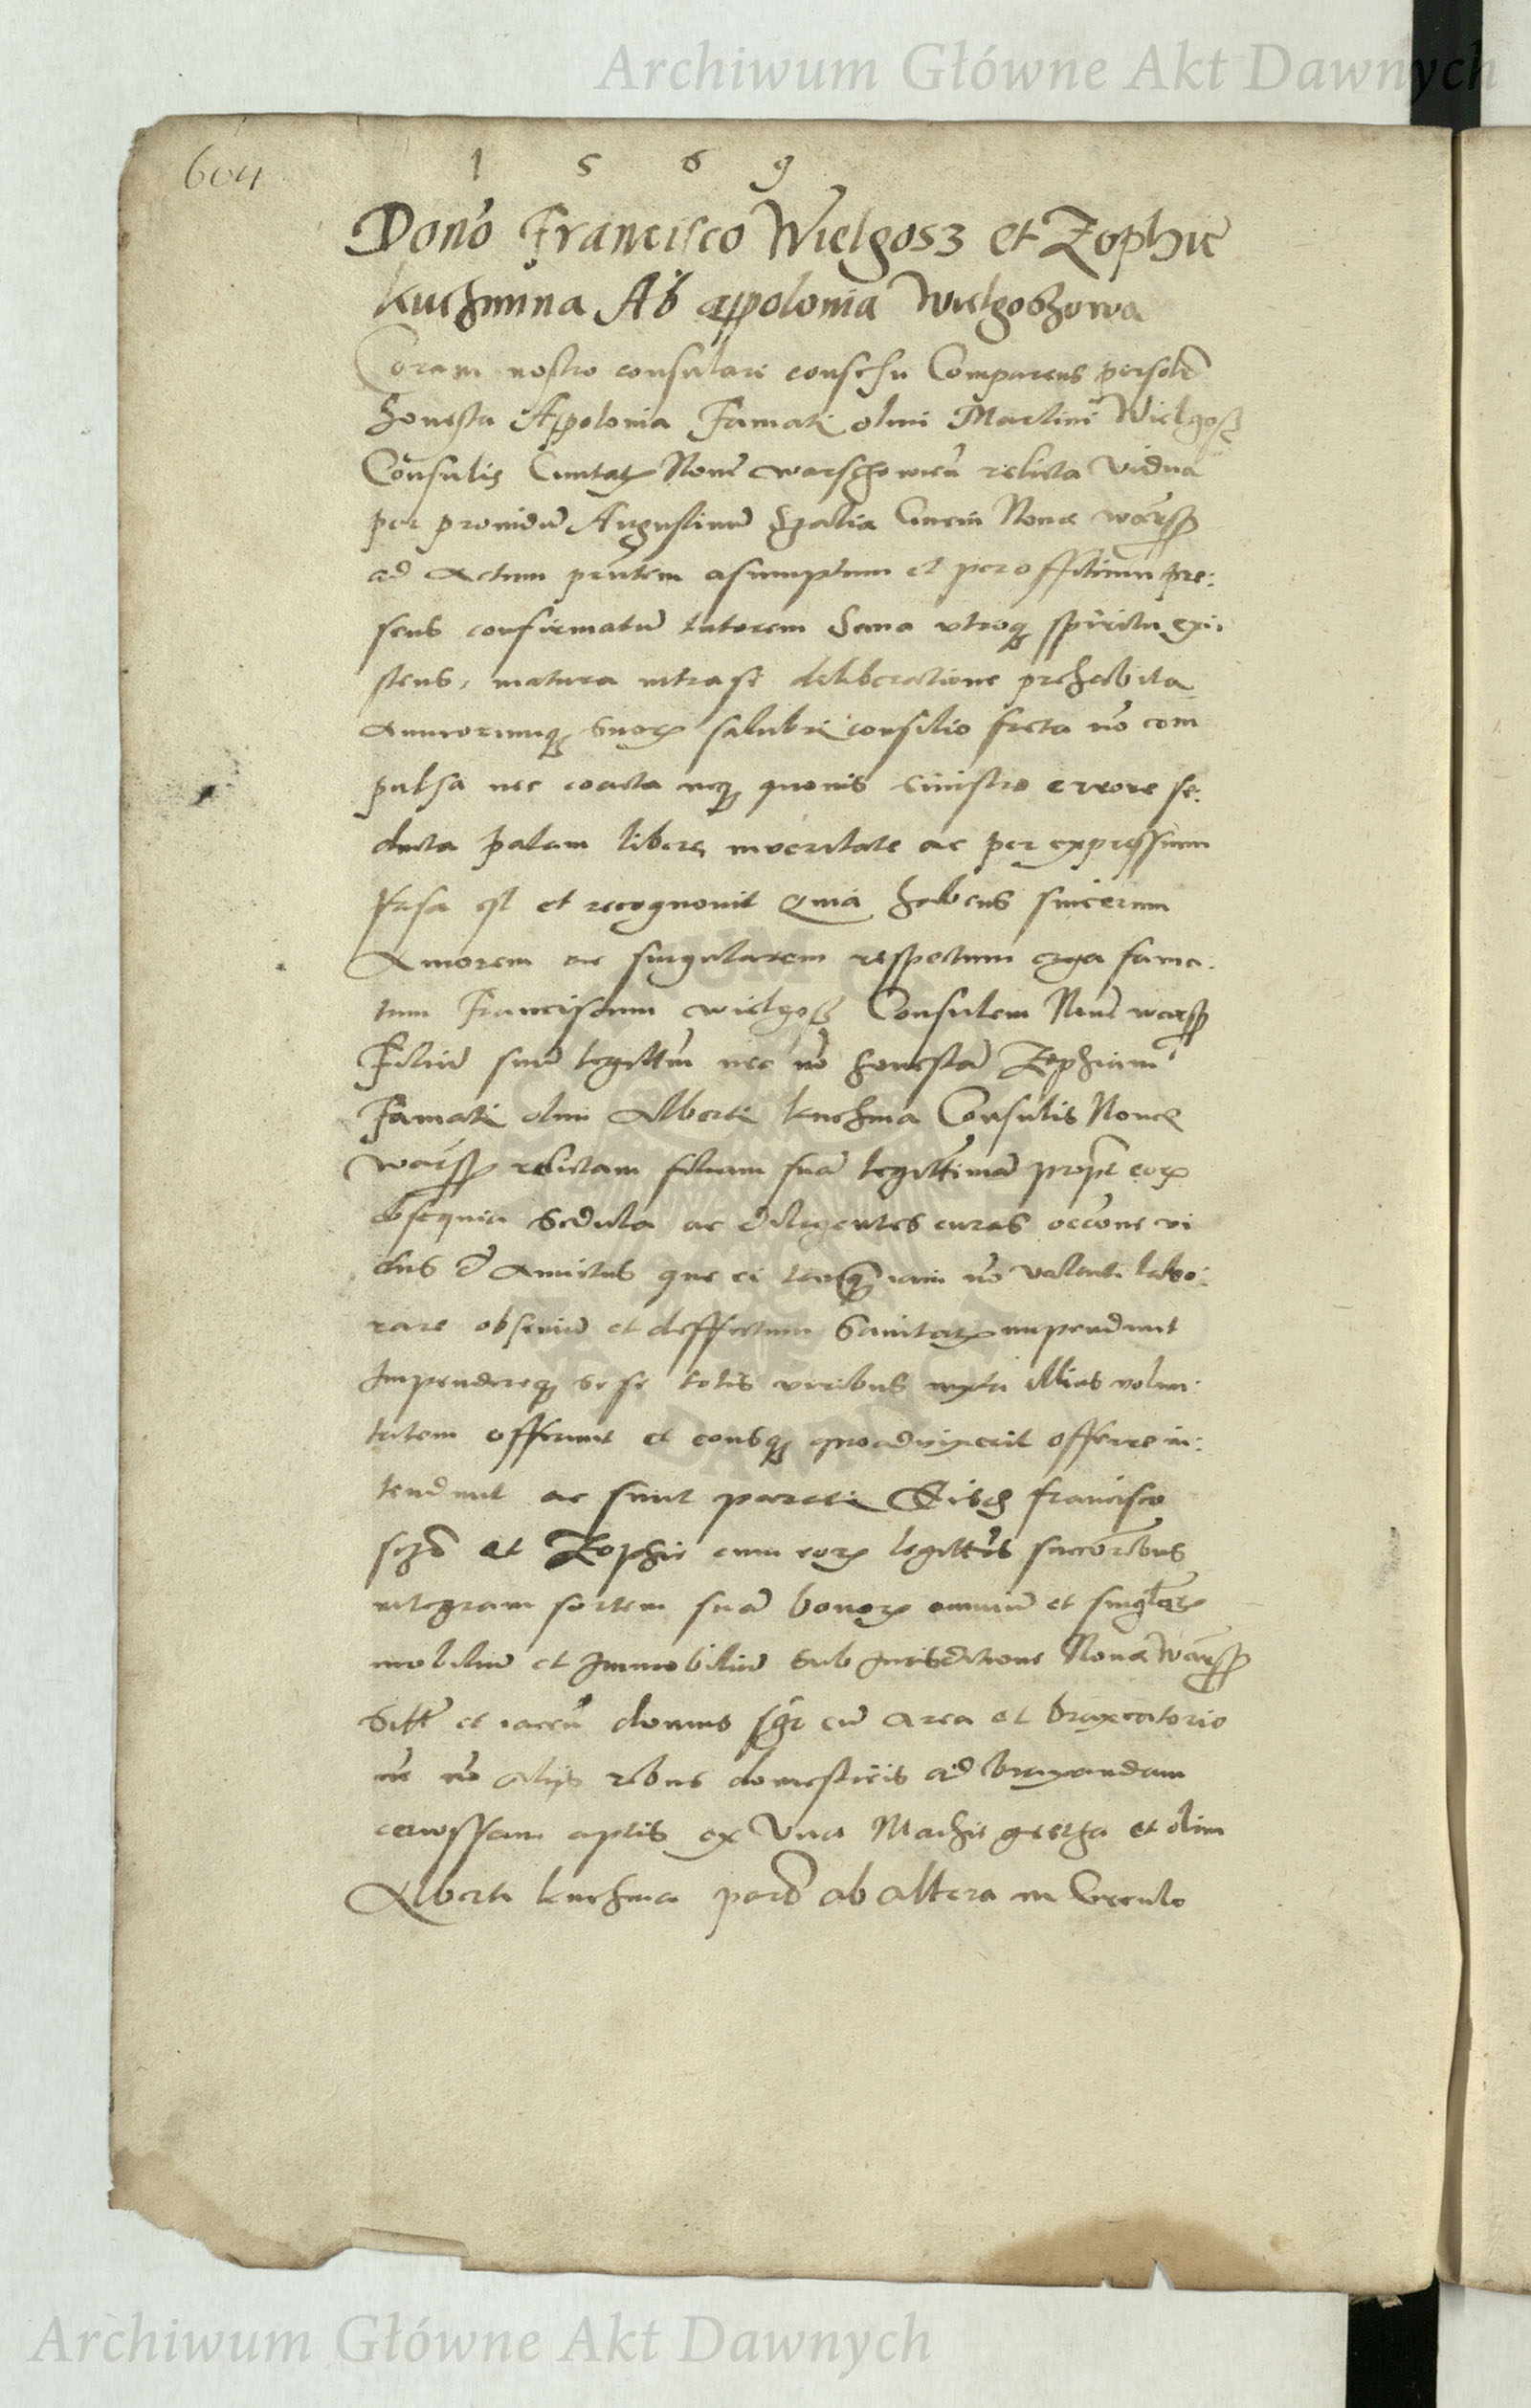 Archiwum Główne Akt Dawnych
604
1 5 6 9
Dono Francisco Wielgosz et Zophie
Kuchmina Ab appolonia Wielgoszowa
Coram nostro consulari consessu Comparens personal
honesta Apolonia Famati olim Martini Wielgosz
Consulis Civitatis Nove warschowien relicta vidua
per providum Augustinum Civem Nove warsch
ad Actum presentem asumptum et per offitium pre:
sens confirmatu tutorem Sana utroq spiritu exi:
stens, matura intra se deliberatione prehabita
Amicorumq suor salubri consilio freta no com
pulsa nec coacta neq quovis sinistro errore se:
ducta palam libere in veritate ac per expressum
fassa est et recognovit Quia habens sincerum
Amorem ac singularem respectum erga fama:
tum Franciscum wielgosz Consulem Nove warsch
Filiu suu legittim nec no honesta Zophiam
Famati olim Alberti kuchma Consulis Nove
warsch relictam filiam sua legittima propt eor
obsequia sedula ac diligentes curas vi
ctus et Amictus que ei iam no valenti labo:
rare ob seniu et deffectum Sanitatis impendunt
Impendereq sese totis viribus iuxta illius volun:
tatem offerunt et eousq quoad vixerit offerre in:
tendunt ac sunt parati Eisdem francisco
et Zophie cum eor legittis succoribus
integram sortem sua bonor omniu et singular
mobiliu et Immobiliu sub Iurisditione Nova Warsch
Sitt et iacen domus cu area et braxatorio
nec no alijs rebus domesticis ad braxandam
cervissam aptis ex una Machie et olim
Alberti kuchma ab altera in Circulo
Archiwum Główne Akt Dawnych